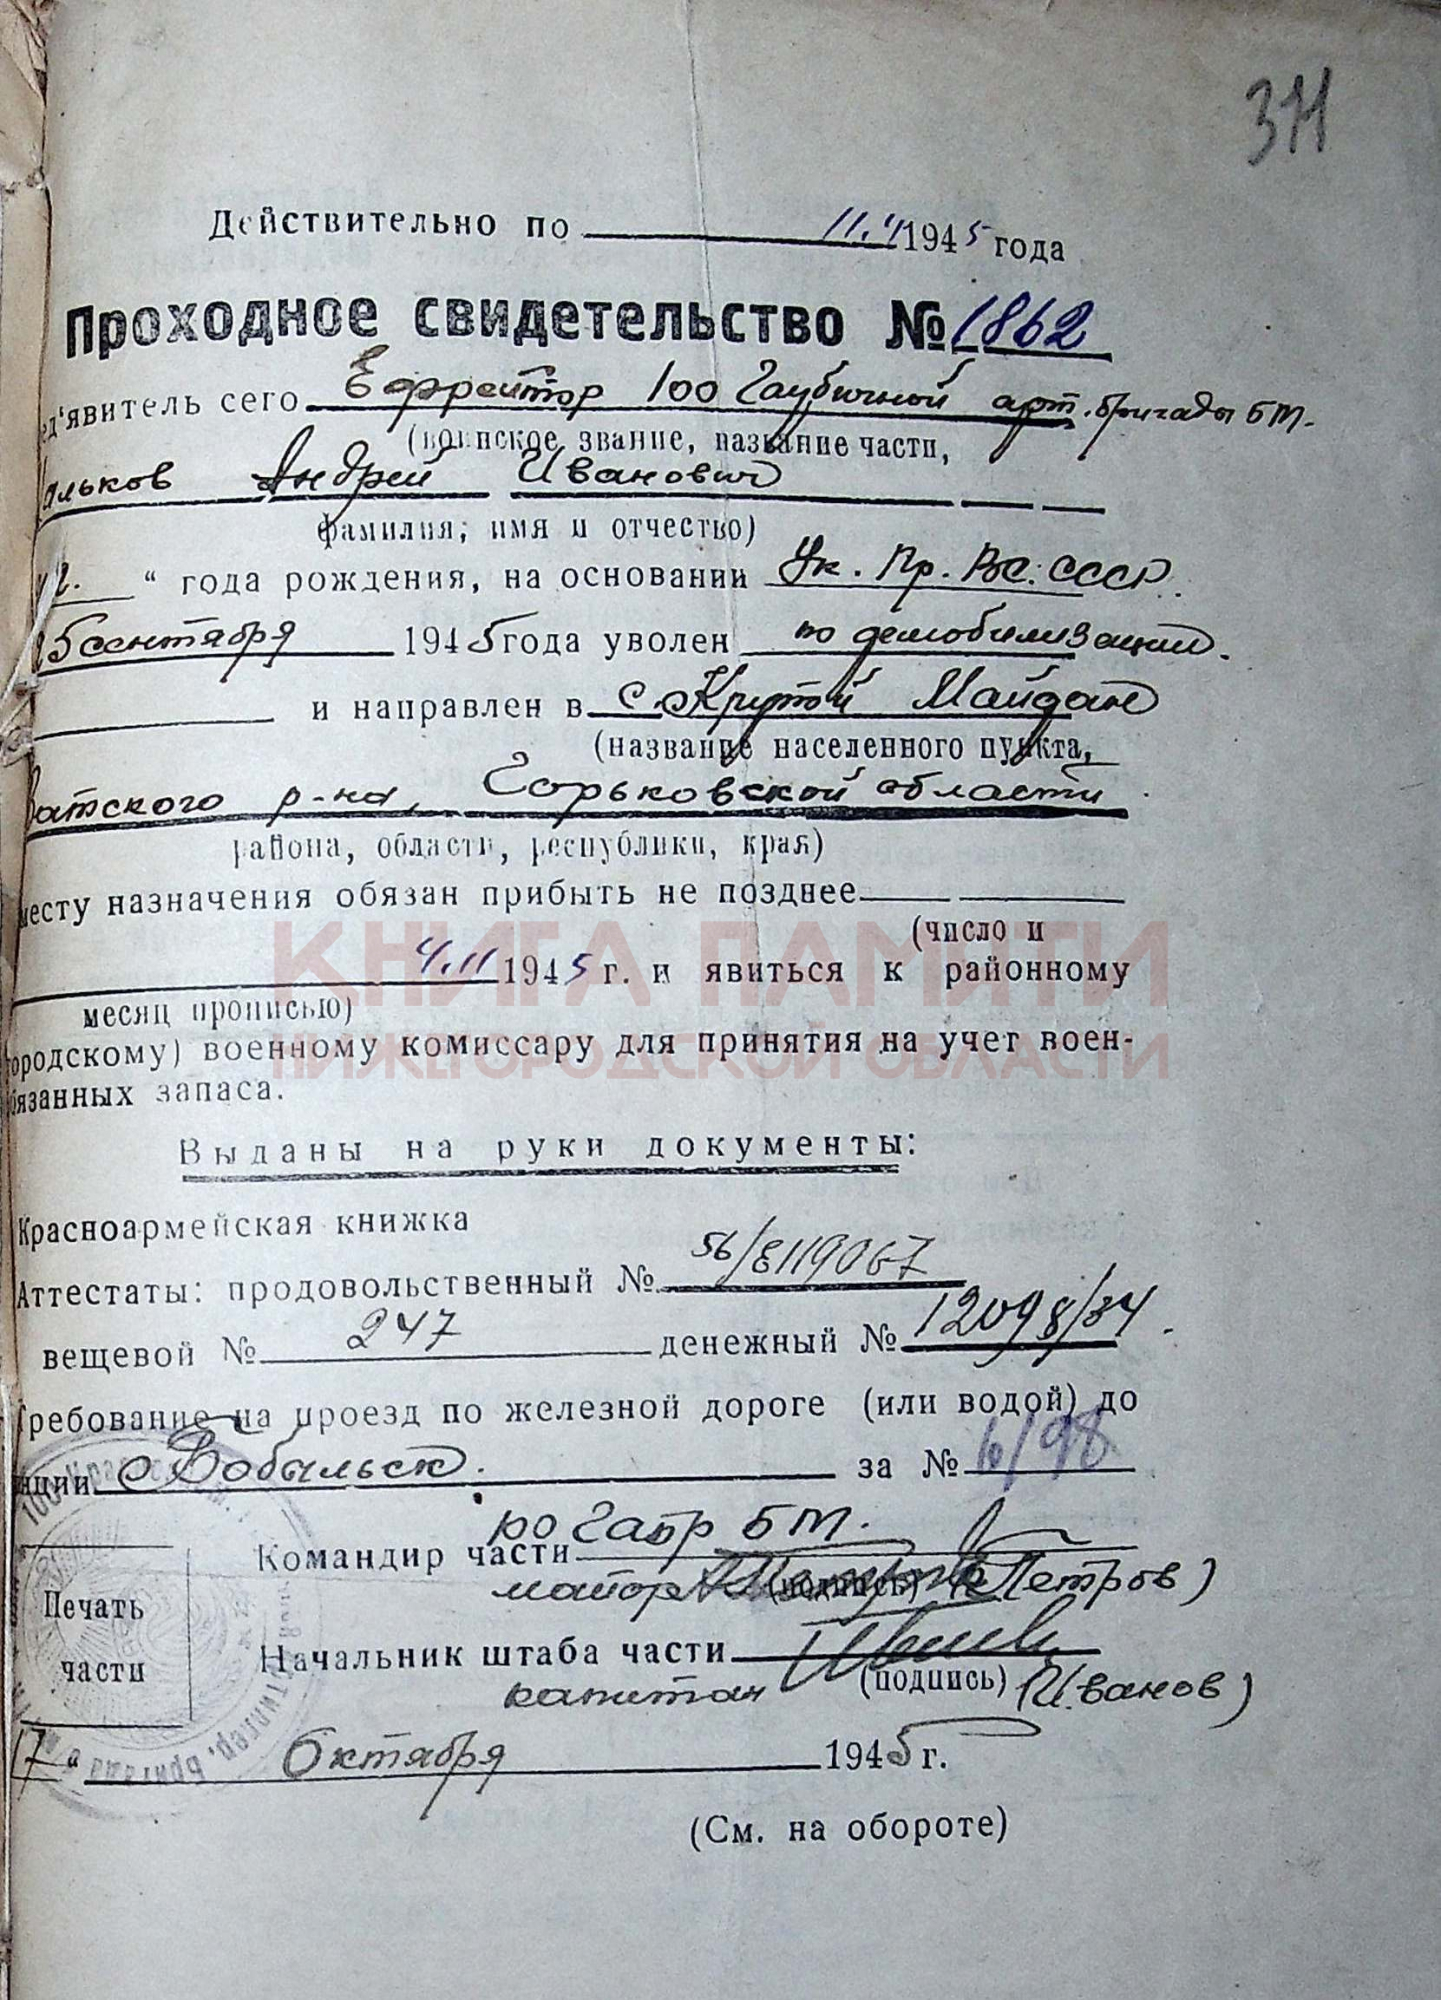 311
Действительно по 11.11 1945 года
Проходное свидетельство № 1862
ед'явитель сего Ефрейтор 100 Гаубичной арт. бригады БМ.
(воинское звание, название части,
альков Андрей Иванович
фамилия, имя и отчество)
“ года рождения, на основании Ук. Пр. ВС. СССР.
25 сентября 1945 года уволен по демобилизации.
и направлен в с. Крутой Майдан
(название населенного пункта,
Ватского р-на, Горьковской области
района, области, республики, края)
месту назначения обязан прибыть не позднее
(число и
4.11 1945 г. и явиться к районному
месяц прописью)
городскому) военному комиссару для принятия на учет воен-
бязанных запаса.
Выданы на руки документы:
Красноармейская книжка
Аттестаты: продовольственный № 56/8119067
вещевой № 247 денежный № 12098/34
Требование на проезд по железной дороге (или водой) до
нции с Бобыльск. за № 16/98
Командир части 100 Габр БМ.
майор (подпись) (Петров)
Печать
части
Начальник штаба части
капитан (подпись) (Иванов)
17 “ Октября 1945 г.
(См. на обороте)
КНИГА ПАМЯТИ
НИЖЕГОРОДСКОЙ ОБЛАСТИ